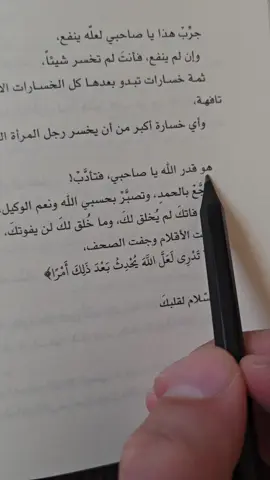 جرِّبْ هذا يا صاحبي لعلّه ينفع،
وإن لم ينفع، فأنتَ لم تخسر شيئاً،
ثمة خسارات تبدو بعدها كل الخسارات
تافهة،
وأي خسارة أكبر من أن يخسر رجل المرأة
هو قدر الله يا صاحبي، فتأدَّبْ!
بالحمدِ، وتصبَّرْ بحسبي الله ونعم الوكيل،
فاتكَ لم يُخلق لكَ، وما خُلق لكَ لن يفوتكَ،
الأقلام وجفت الصحف،
تَدْرِى لَعَلَّ اللَّهَ يُحْدِثُ بَعْدَ ذَلِكَ أَمْرًا﴾
لقلبكَ